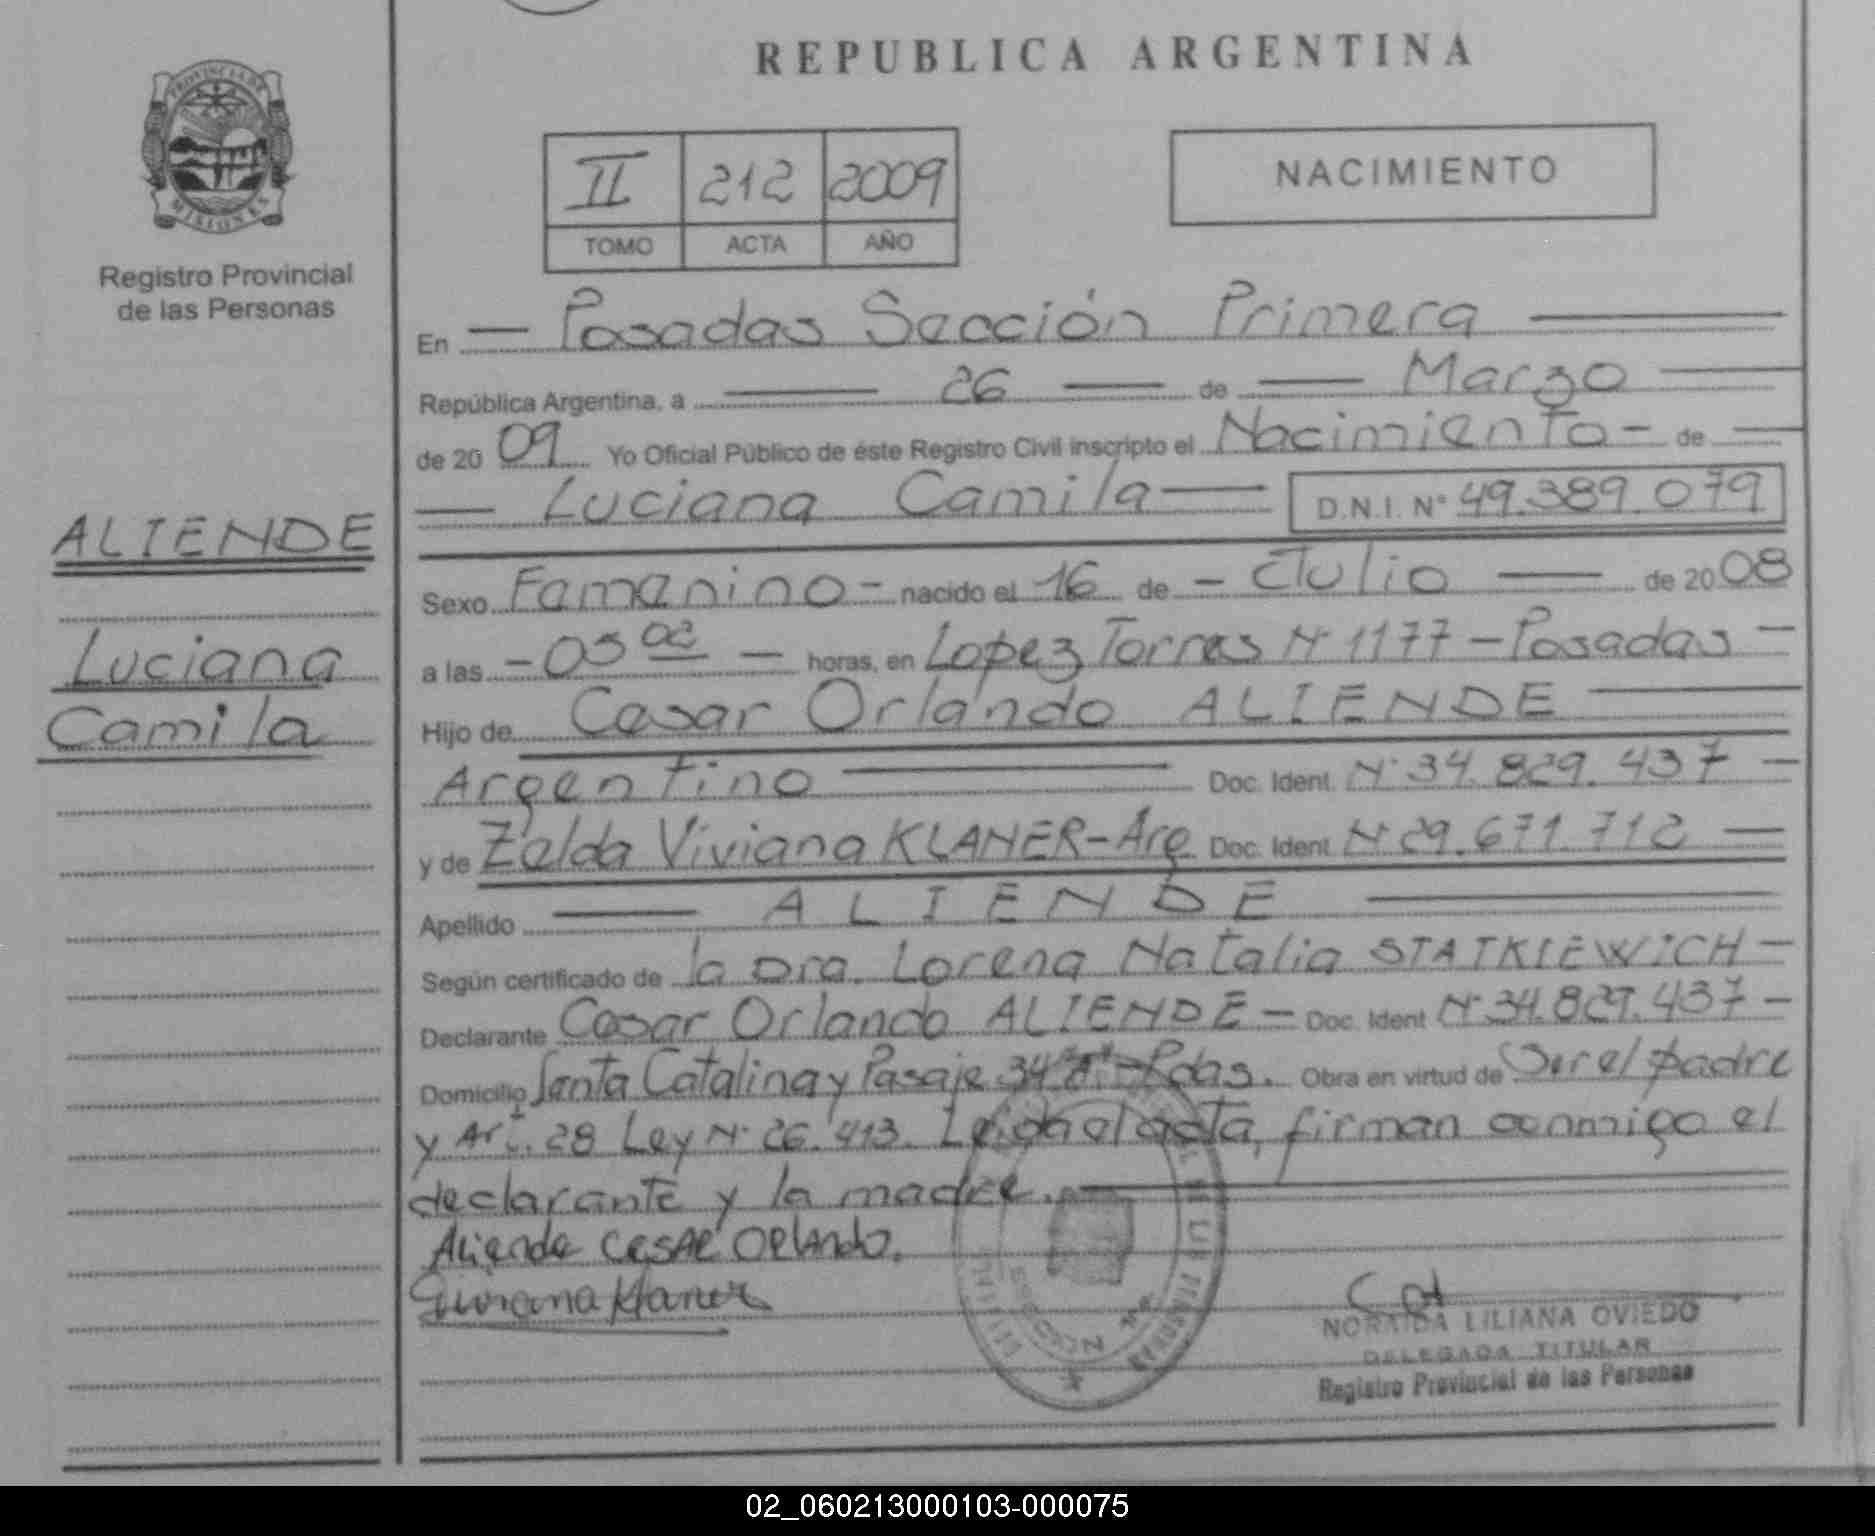 REPUBLICA ARGENTINA
PROVINCIA DE
MISIONES
Registro Provincial
de las Personas
II 212 2009
TOMO ACTA AÑO
NACIMIENTO
ALIENDE
Luciana
Camila
En Posadas Sección Primera
República Argentina, a 26 de Marzo
de 2009 Yo Oficial Público de éste Registro Civil inscripto el Nacimiento - de
Luciana Camila D.N.I. Nº 49.389.079
Sexo Femenino - nacido el 16 de - Julio de 2008
a las - 03 00 - horas, en Lopez Torres Nº 1177 - Posadas -
Hijo de Cesar Orlando ALIENDE
Argentino Doc. Ident. Nº 34.829.437 -
y de Zelda Viviana KLANER - Arg Doc. Ident Nº 29.671.712
Apellido ALIENDE
Según certificado de la Dra. Lorena Natalia STATKIEWICH -
Declarante Cesar Orlando ALIENDE - Doc. Ident Nº 34.829.437 -
Domicilio Santa Catalina y Pasaje 34 - Pdas. Obra en virtud de Ser el padre
y Art. 28 Ley Nº 26.413. Leida el acta, firman conmigo el
declarante y la madre.
Aliende CESAR ORLANDO.
Viviana Klaner
NORAIDA LILIANA OVIEDO
DELEGADA TITULAR
Registro Provincial de las Personas
02_060213000103-000075